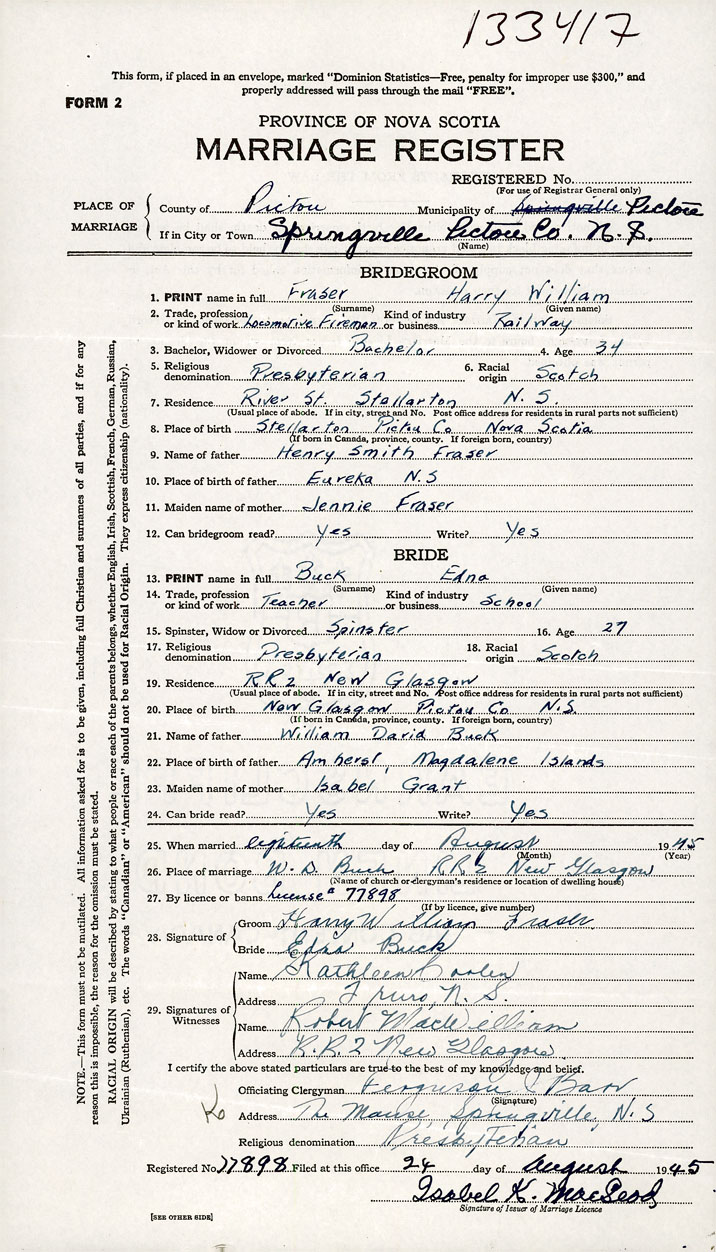 133417
This form, if placed in an envelope, marked "Dominion Statistics—Free, penalty for improper use $300," and
properly addressed will pass through the mail "FREE".
FORM 2
PROVINCE OF NOVA SCOTIA
MARRIAGE REGISTER
REGISTERED No.
(For use of Registrar General only)
PLACE OF MARRIAGE
County of Pictou Municipality of Springville Pictou
If in City or Town Springville Pictou Co. N.S.
(Name)
BRIDEGROOM
1. PRINT name in full Fraser Harry William
(Surname) (Given name)
2. Trade, profession or kind of work Locomotive Fireman Kind of industry or business Railway
3. Bachelor, Widower or Divorced Bachelor 4. Age 34
5. Religious denomination Presbyterian 6. Racial origin Scotch
7. Residence River St. Stellarton N.S.
(Usual place of abode. If in city, street and No. Post office address for residents in rural parts not sufficient)
8. Place of birth Stellarton Pictou Co Nova Scotia
(If born in Canada, province, county. If foreign born, country)
9. Name of father Henry Smith Fraser
10. Place of birth of father Eureka N.S
11. Maiden name of mother Jennie Fraser
12. Can bridegroom read? Yes Write? Yes
BRIDE
13. PRINT name in full Buck Edna
(Surname) (Given name)
14. Trade, profession or kind of work Teacher Kind of industry or business School
15. Spinster, Widow or Divorced Spinster 16. Age 27
17. Religious denomination Presbyterian 18. Racial origin Scotch
19. Residence RR2 New Glasgow
(Usual place of abode. If in city, street and No. Post office address for residents in rural parts not sufficient)
20. Place of birth New Glasgow Pictou Co N.S.
(If born in Canada, province, county. If foreign born, country)
21. Name of father William David Buck
22. Place of birth of father Amherst, Magdalene Islands
23. Maiden name of mother Isabel Grant
24. Can bride read? Yes Write? Yes
25. When married eighteenth day of August 1945
(Month) (Year)
26. Place of marriage W. D. Buck RR2 New Glasgow
(Name of church or clergyman's residence or location of dwelling house)
27. By licence or banns License # 77898
(If by licence, give number)
28. Signature of
Groom Harry William Fraser
Bride Edna Buck
29. Signatures of Witnesses
Name Kathleen
Address Truro, N.S.
Name Robert MacWilliam
Address R.R.2 New Glasgow
I certify the above stated particulars are true to the best of my knowledge and belief.
Officiating Clergyman Ferguson Barr
(Signature)
Address The Manse, Springville, N.S
Religious denomination Presbyterian
Registered No. 77898 Filed at this office 24 day of August 1945
Isabel K. MacLeod
Signature of Issuer of Marriage Licence
[SEE OTHER SIDE]
NOTE.—This form must not be mutilated. All information asked for is to be given, including full Christian and surnames of all parties, and if for any
reason this is impossible, the reason for the omission must be stated.
RACIAL ORIGIN will be described by stating to what people or race each of the parents belongs, whether English, Irish, Scottish, French, German, Russian,
Ukrainian (Ruthenian), etc. The words "Canadian" or "American" should not be used for Racial Origin. They express citizenship (nationality).